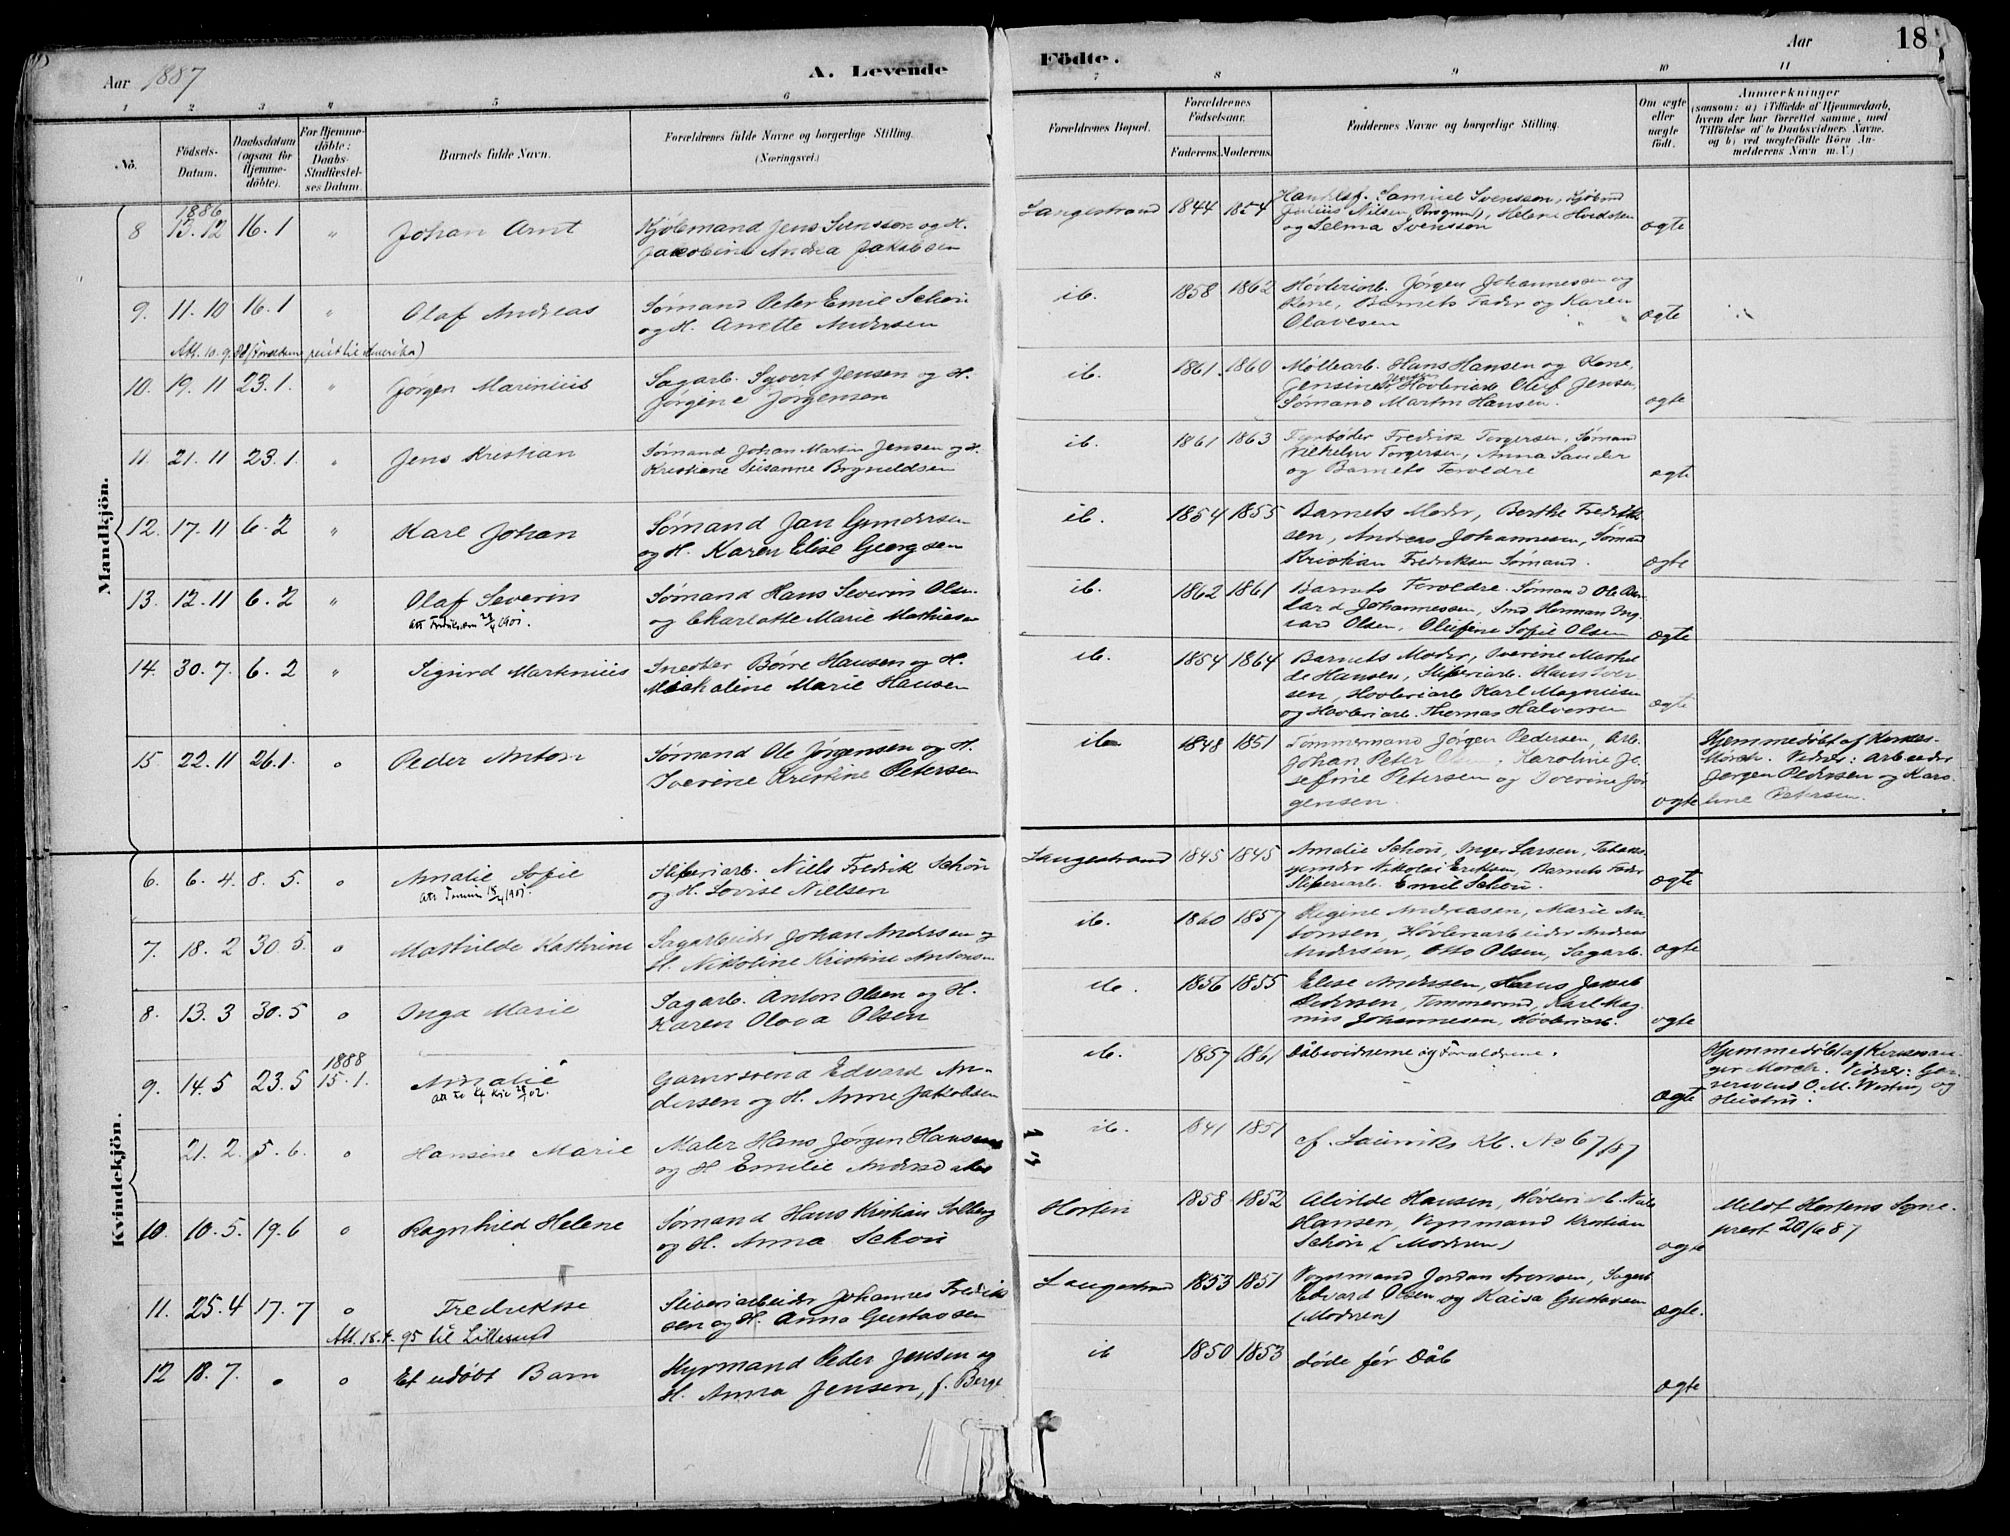 Aar 1887
A. Levende
Födte.
Aar
18
1 2 3 4 5 6 7 8 9 10 11
Nö.
Födsels-
Datum.
Daabsdatum
(ogsaa for
Hjemme-
döbte).
For Hjemme-
döbte:
Daabs-
Stadfæstel-
ses Datum.
Barnets fulde Navn.
Forældrenes fulde Navne og borgerlige Stilling.
(Næringsvei.)
Forældrenes Bopæl.
Forældrenes
Födselsaar.
Faderens. Moderens.
Faddernes Navne og borgerlige Stilling.
Om ægte
eller
uægte
født.
Anmærkninger
(saasom: a) i Tilfælde af Hjemmedaab,
hvem der har forrettet samme, med
Tilföielse af to Daabsvidners Navne.
og b) ved uægtefödte Börn An-
melderens Navn m. V.)
Mandkjön.
8 1886 13.12 16.1 " Johan Arnt
Kjölemand Jens Svensson og H.
Jacobine Andrea Jakobsen
Langestrand 1844 1854
Handelsf. Samuel Svensson,
Julius Nilsen (Porsgrund), Helene
og Selma Svensson
ægte
9. 11.10 16.1 " Olaf Andreas
Sømand Peter Emil Schøu
og H. Anette Andersen
Att. 10.9. (Forældrene reist til Amerika)
ib. 1858 1862
Høvleriarb. Jørgen Johannessen og
Kone, Barnets Fader og Karen
Olavesen
ægte
10. 19.11 23.1. " Jørgen Marinius
Sagarb. Syvert Jensen og H.
Jørgine Jørgensen
ib. 1861. 1860
Møllearb. Hans Hansen og Kone,
Gensine Jensen Høvleriarb. Oluf Jensen,
Sømand Martin Hansen.
ægte
11. 21.11 23.1. " Jens Kristian
Sømand Johan Martin Jensen og H.
Kristiane Susanne Brynildsen
ib. 1861 1863
Fyrbøder Fredrik Torgersen, Sømand
Vilhelm Torgersen, Anna Sander
og Barnets Forældre
ægte
12. 17.11 6.2 " Karl Johan
Sømand Jan Gundersen
og H. Karen Elise Georgsen
ib. 1854 1855
Barnets Moder, Berthe Fredrik-
sen, Andreas Johannesen, Sømand
Kristian Fredriksen Sømand.
ægte
13. 12.11 6.2 " Olaf Severin
Sømand Hans Severin Olsen
og Charlotte Marie Mathisen
ib. 1862 1861
Barnets Forældre. Sømand Ole
Johannessen, Smed Herman Ing-
vard Olsen, Olufine Sofie Olsen
ægte
14. 30.7. 6.2 " Sigurd Martinius
Snedker Børre Hansen og H.
Michaline Marie Hansen
ib. 1854 1864
Barnets Moder, Iverine Mathil-
de Hansen, Sliberiarb. Hans Iver-
sen, Høvleriarb Karl Magnusen
og Høvleriarb. Thomas Halvorsen
ægte
15 22.11 26.1. o Peder Anton
Sømand Ole Jørgensen og H.
Iverine Kristine Petersen
ib 1848 1851
Tømmermand Jørgen Pedersen, Arb.
Johan Peter Olsen, Karoline Jo-
sefine Petersen og Iverine Jør-
gensen.
ægte
Hjemmedøbt af Kirkes.
Mørch. Vidner: Arbeider
Jørgen Pedersen og Karo-
line Petersen.
Kvindekjön.
6. 6.4. 8.5. o Amalie Sofie
Sliberiarb. Niels Fredrik Schøn
og H. Lovise Nielsen
Langestrand 1845 1845
Amalie Schøu, Inger Larsen, Tobaks-
spinder Nikolai Eriksen, Barnets Fader
Sliberiarb. Emil Schøu.
ægte
7. 18.2 30.5. o Mathilde Kathrine
Sagarbeider Johan Andersen og
H. Nikoline Kristine Antonsen
ib. 1860 1857
Regine Andreasen, Marie An-
tonsen, Høvleriarbeider Andreas
Andersen, Otto Olsen, Sagarb.
ægte
8. 13.3 30.5 o Inga Marie
Sagarb. Anton Olsen og H.
Karen Olava Olsen
ib. 1856 1855
Elise Andersen, Hans Jakob
Pedersen, Tømmermd, Karl Mag-
nus Johannesen, Høvleriarb.
ægte
9. 14.5 23.5 1888 15.1. Amalie
Garversvend Edvard An-
dersen og H. Anne Jakobsen
ib. 1857 1861
Dåbsvidnerne og Forældrene.
ægte
Hjemmedøbt af Kirkesan-
ger Mørch. Vidner: Gar-
versvend O. M. Westrum og
Hustru.
21.2. 5.6. o Hansine Marie
Maler Hans Jørgen Hansen
og H Emilie Andersdatter
ib. 1841 1851
cf. Laurviks Kb. No 67/87
10. 10.5. 19.6 o Ragnhild Helene
Sømand Hans Kristian Solberg
og H. Anna Schøu
Horten 1858 1852
Alvilde Hansen, Høvleriarb. Nils
Hansen, Vognmand Kristian
Schøn (Modum)
ægte
Meldt Hortens Sogne-
prest 20/6 87
11. 25.4 17.7 o Fredrikke
Sliberiarbeider Johannes Fredrik-
sen og H. Anna Gustavsen
Att. 18.4. 95 til Lillesand
Langestrand 1853 1851
Vognmand Jordan Aronsen, Sagarb
Edvard Olsen og Kaisa Gustavsen
(Modum)
ægte.
12 18.7. o o Et udøbt Barn
Styrmand Peder Jensen og
H. Anna Jensen, f. Berge
ib 1850 1853
døde før Dåb
ægte